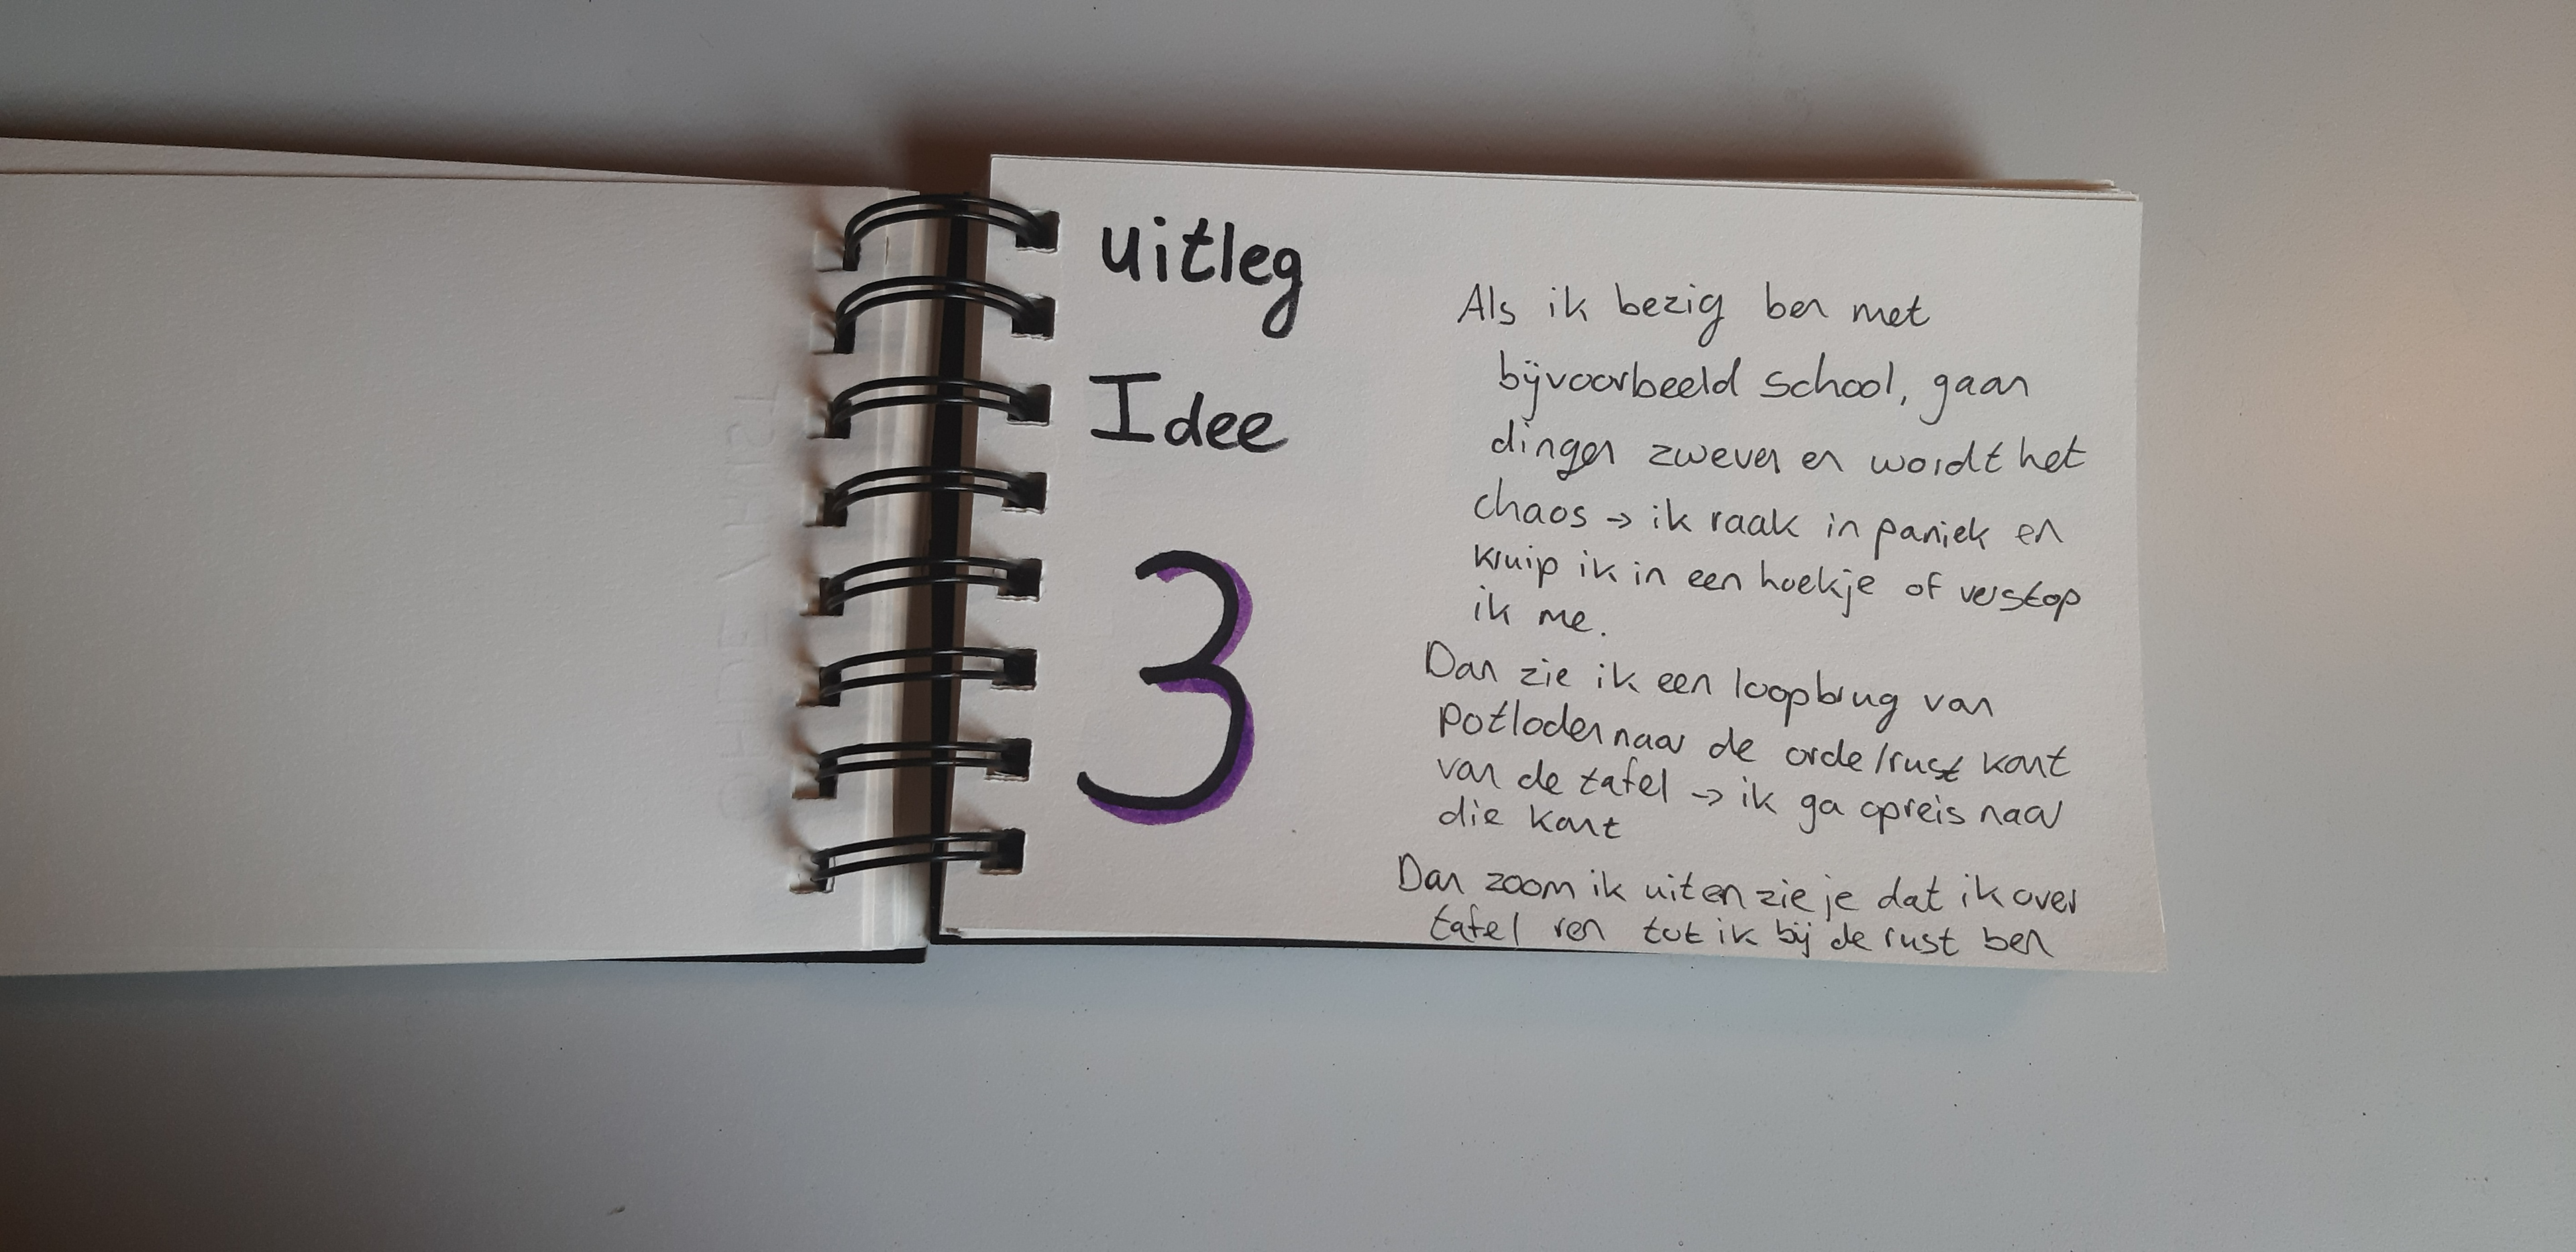 uitleg
Idee
3
Als ik bezig ben met
bijvoorbeeld school, gaan
dingen zweven en wordt het
chaos → ik raak in paniek en
kruip ik in een hoekje of verstop
ik me.
Dan zie ik een loopbrug van
potloden naar de orde/rust kant
van de tafel → ik ga opreis naar
die kant
Dan zoom ik uit en zie je dat ik over
tafel ren tot ik bij de rust ben